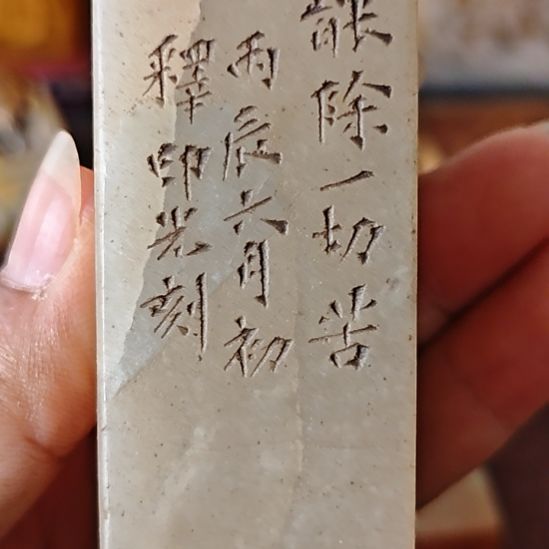 能除一切苦
丙辰六月初
釋印光刻